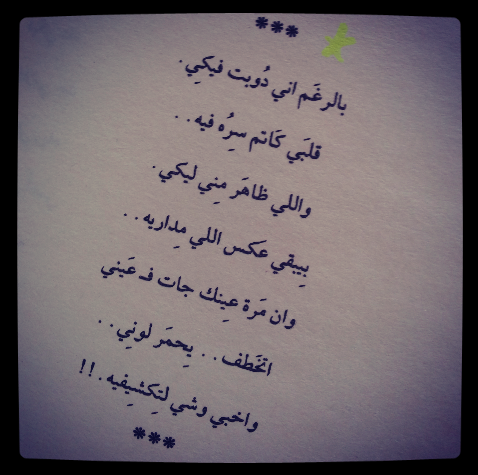 ***
بالرغَم اني دُوبت فيكِي.
قلبَي كَاتم سِرُه فيه..
واللي ظاهَر مِني ليكي.
بِيبقي عَكس اللي مِداريه..
وان مَرة عِينك جات فـ عَيني
اتخَطف.. يِحمَر لونِي..
واخبي وشي لتِكشِيفيه.!!
***